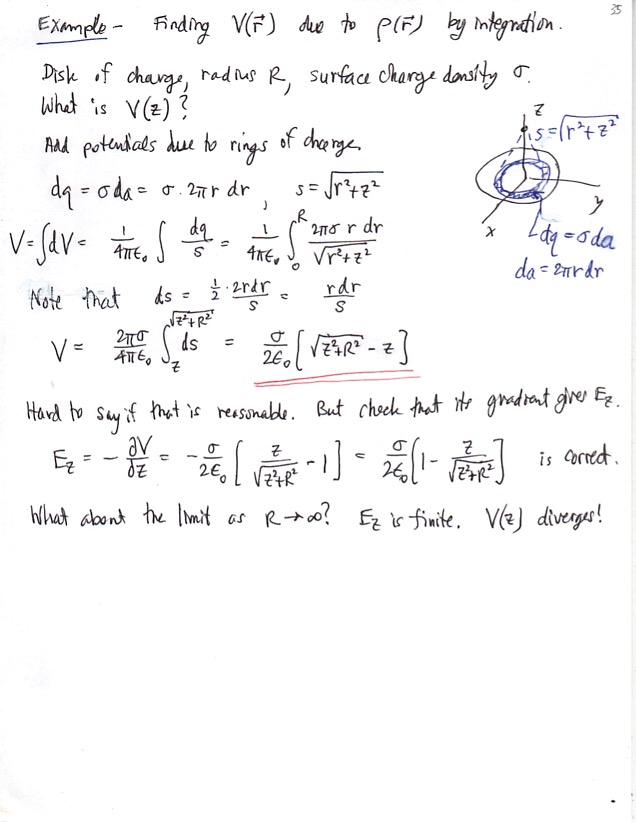 35
Example – Finding V(r⃗) due to ρ(r⃗) by integration.
Disk of charge, radius R, surface charge density σ.
What is V(z)?
Add potentials due to rings of charge.
dq = σda = σ·2πr dr, s = √(r²+z²)
V = ∫dV = 1/(4πε₀) ∫ dq/s = 1/(4πε₀) ∫₀ᴿ 2πσ r dr/√(r²+z²)
Note that ds = ½·2rdr/s = rdr/s
V = 2πσ/(4πε₀) ∫_z^√(z²+R²) ds = σ/(2ε₀) [√(z²+R²) - z]
z
s=√(r²+z²)
y
x
dq = σda
da = 2πrdr
Hard to say if that is reasonable. But check that its gradient gives E_z.
E_z = -∂V/∂z = -σ/(2ε₀) [z/√(z²+R²) - 1] = σ/(2ε₀) [1 - z/√(z²+R²)] is correct.
What about the limit as R→∞? E_z is finite. V(z) diverges!